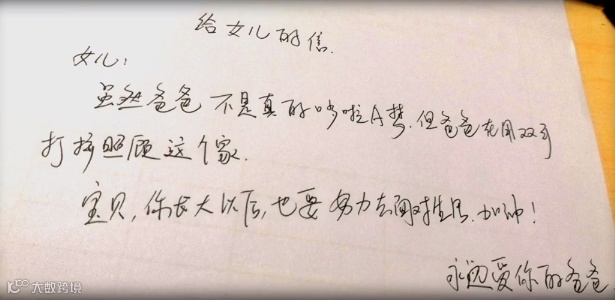 给女儿的信.
女儿:
虽然爸爸不是真的哆啦A梦.但爸爸在用双手
打拼照顾这个家.
宝贝,你长大以后,也要努力去面对生活.加油!
永远爱你的爸爸
大数跨境